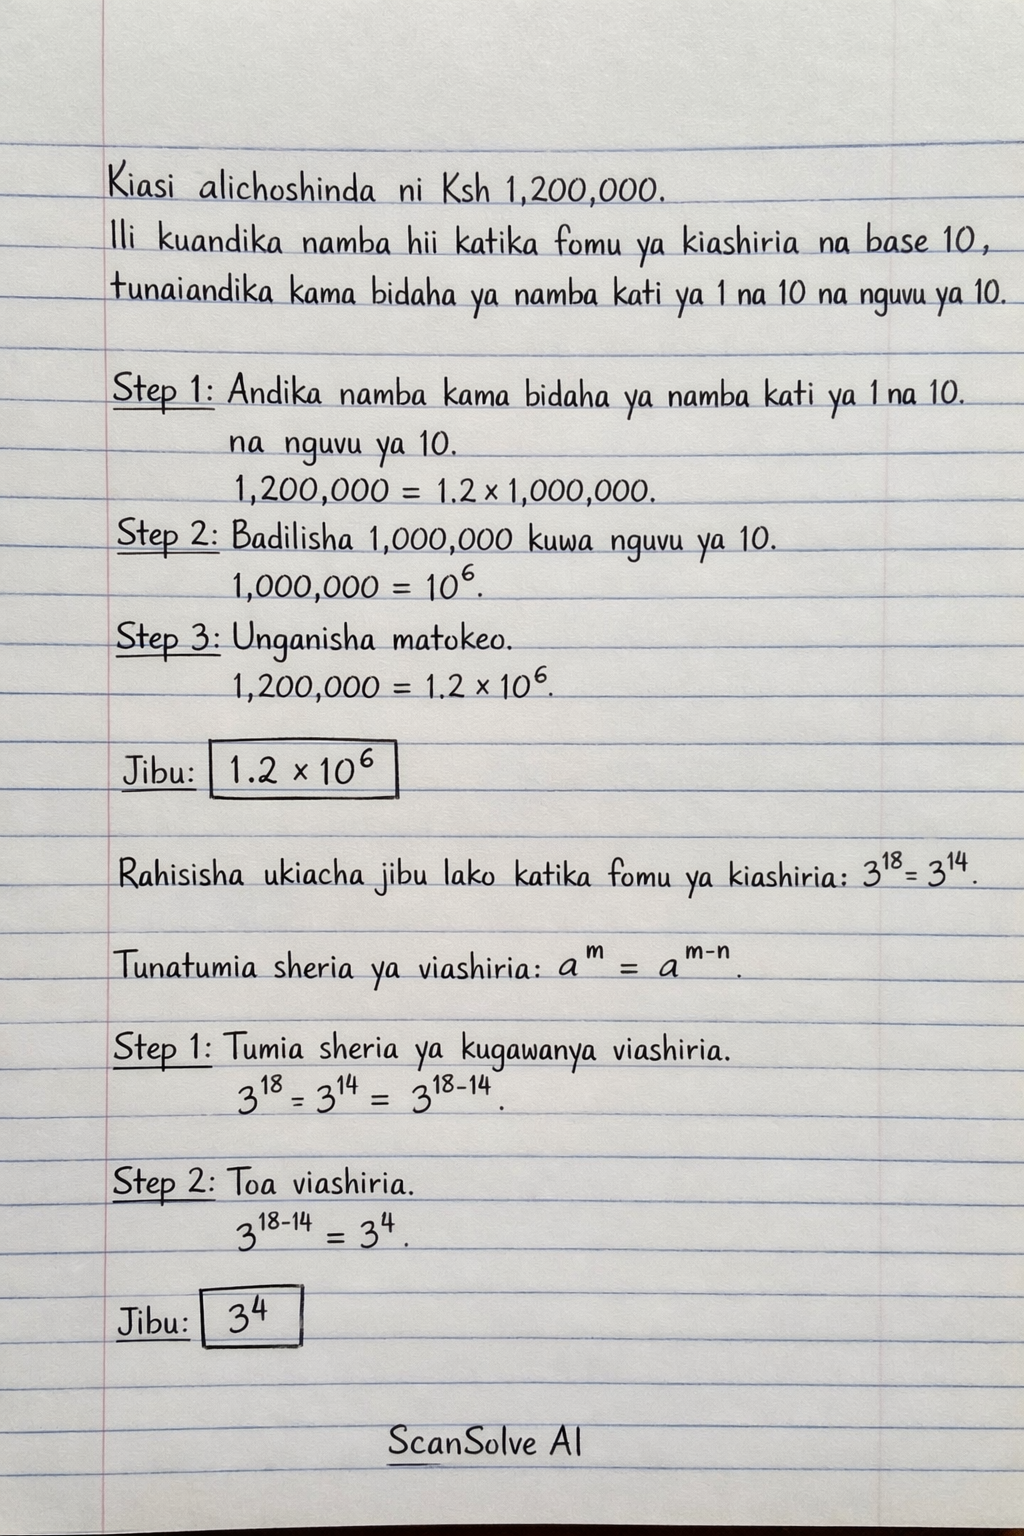 Kiasi alichoshinda ni Ksh 1,200,000.
Ili kuandika namba hii katika fomu ya kiashiria na base 10,
tunaiandika kama bidaha ya namba kati ya 1 na 10 na nguvu ya 10.
Step 1: Andika namba kama bidaha ya namba kati ya 1 na 10.
na nguvu ya 10.
1,200,000 = 1.2 × 1,000,000.
Step 2: Badilisha 1,000,000 kuwa nguvu ya 10.
1,000,000 = 10⁶.
Step 3: Unganisha matokeo.
1,200,000 = 1.2 × 10⁶.
Jibu: 1.2 × 10⁶
Rahisisha ukiacha jibu lako katika fomu ya kiashiria: 3¹⁸ = 3¹⁴.
Tunatumia sheria ya viashiria: aᵐ = aᵐ⁻ⁿ.
Step 1: Tumia sheria ya kugawanya viashiria.
3¹⁸ = 3¹⁴ = 3¹⁸⁻¹⁴.
Step 2: Toa viashiria.
3¹⁸⁻¹⁴ = 3⁴.
Jibu: 3⁴
ScanSolve AI